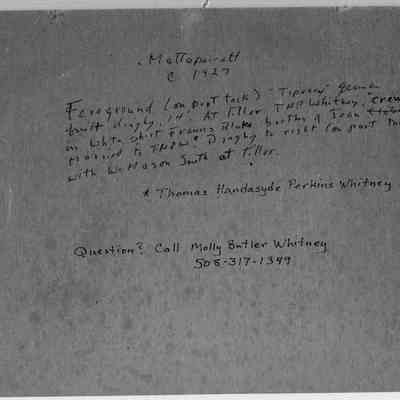 Mattapoisett
c 1927
Foreground (on port tack) "Tipsey" German
built dinghy, 14'. At tiller TNPWhitney, crew
in white shirt Francis Blake, brother of Joan
married to TNPW* Dinghy to right (on port
with Wm Mason Smith at tiller.
* Thomas Handasyde Perkins Whitney
Question? Call Molly Butler Whitney
508-317-1349